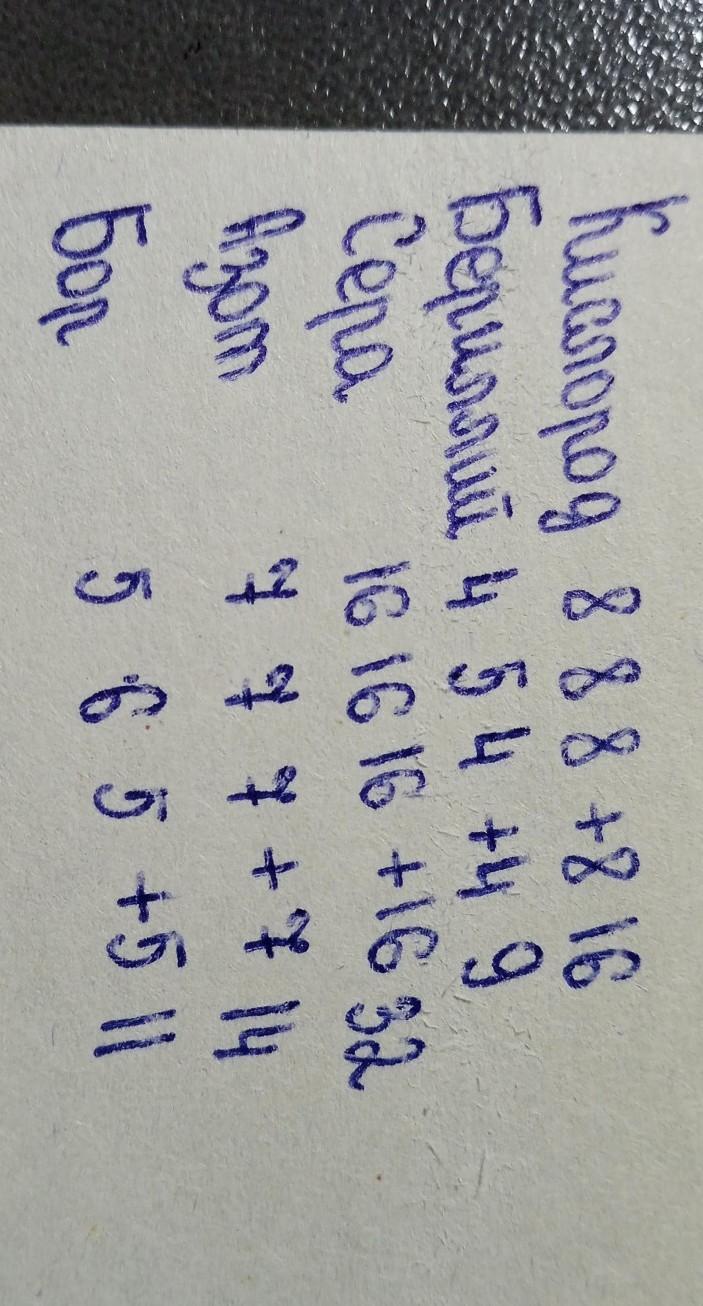 Кислород 8 8 8 +8 16
Бериллий 4 5 4 +4 9
Сера 16 16 16 +16 32
Азот 7 7 7 +7 14
Бор 5 6 5 +5 11